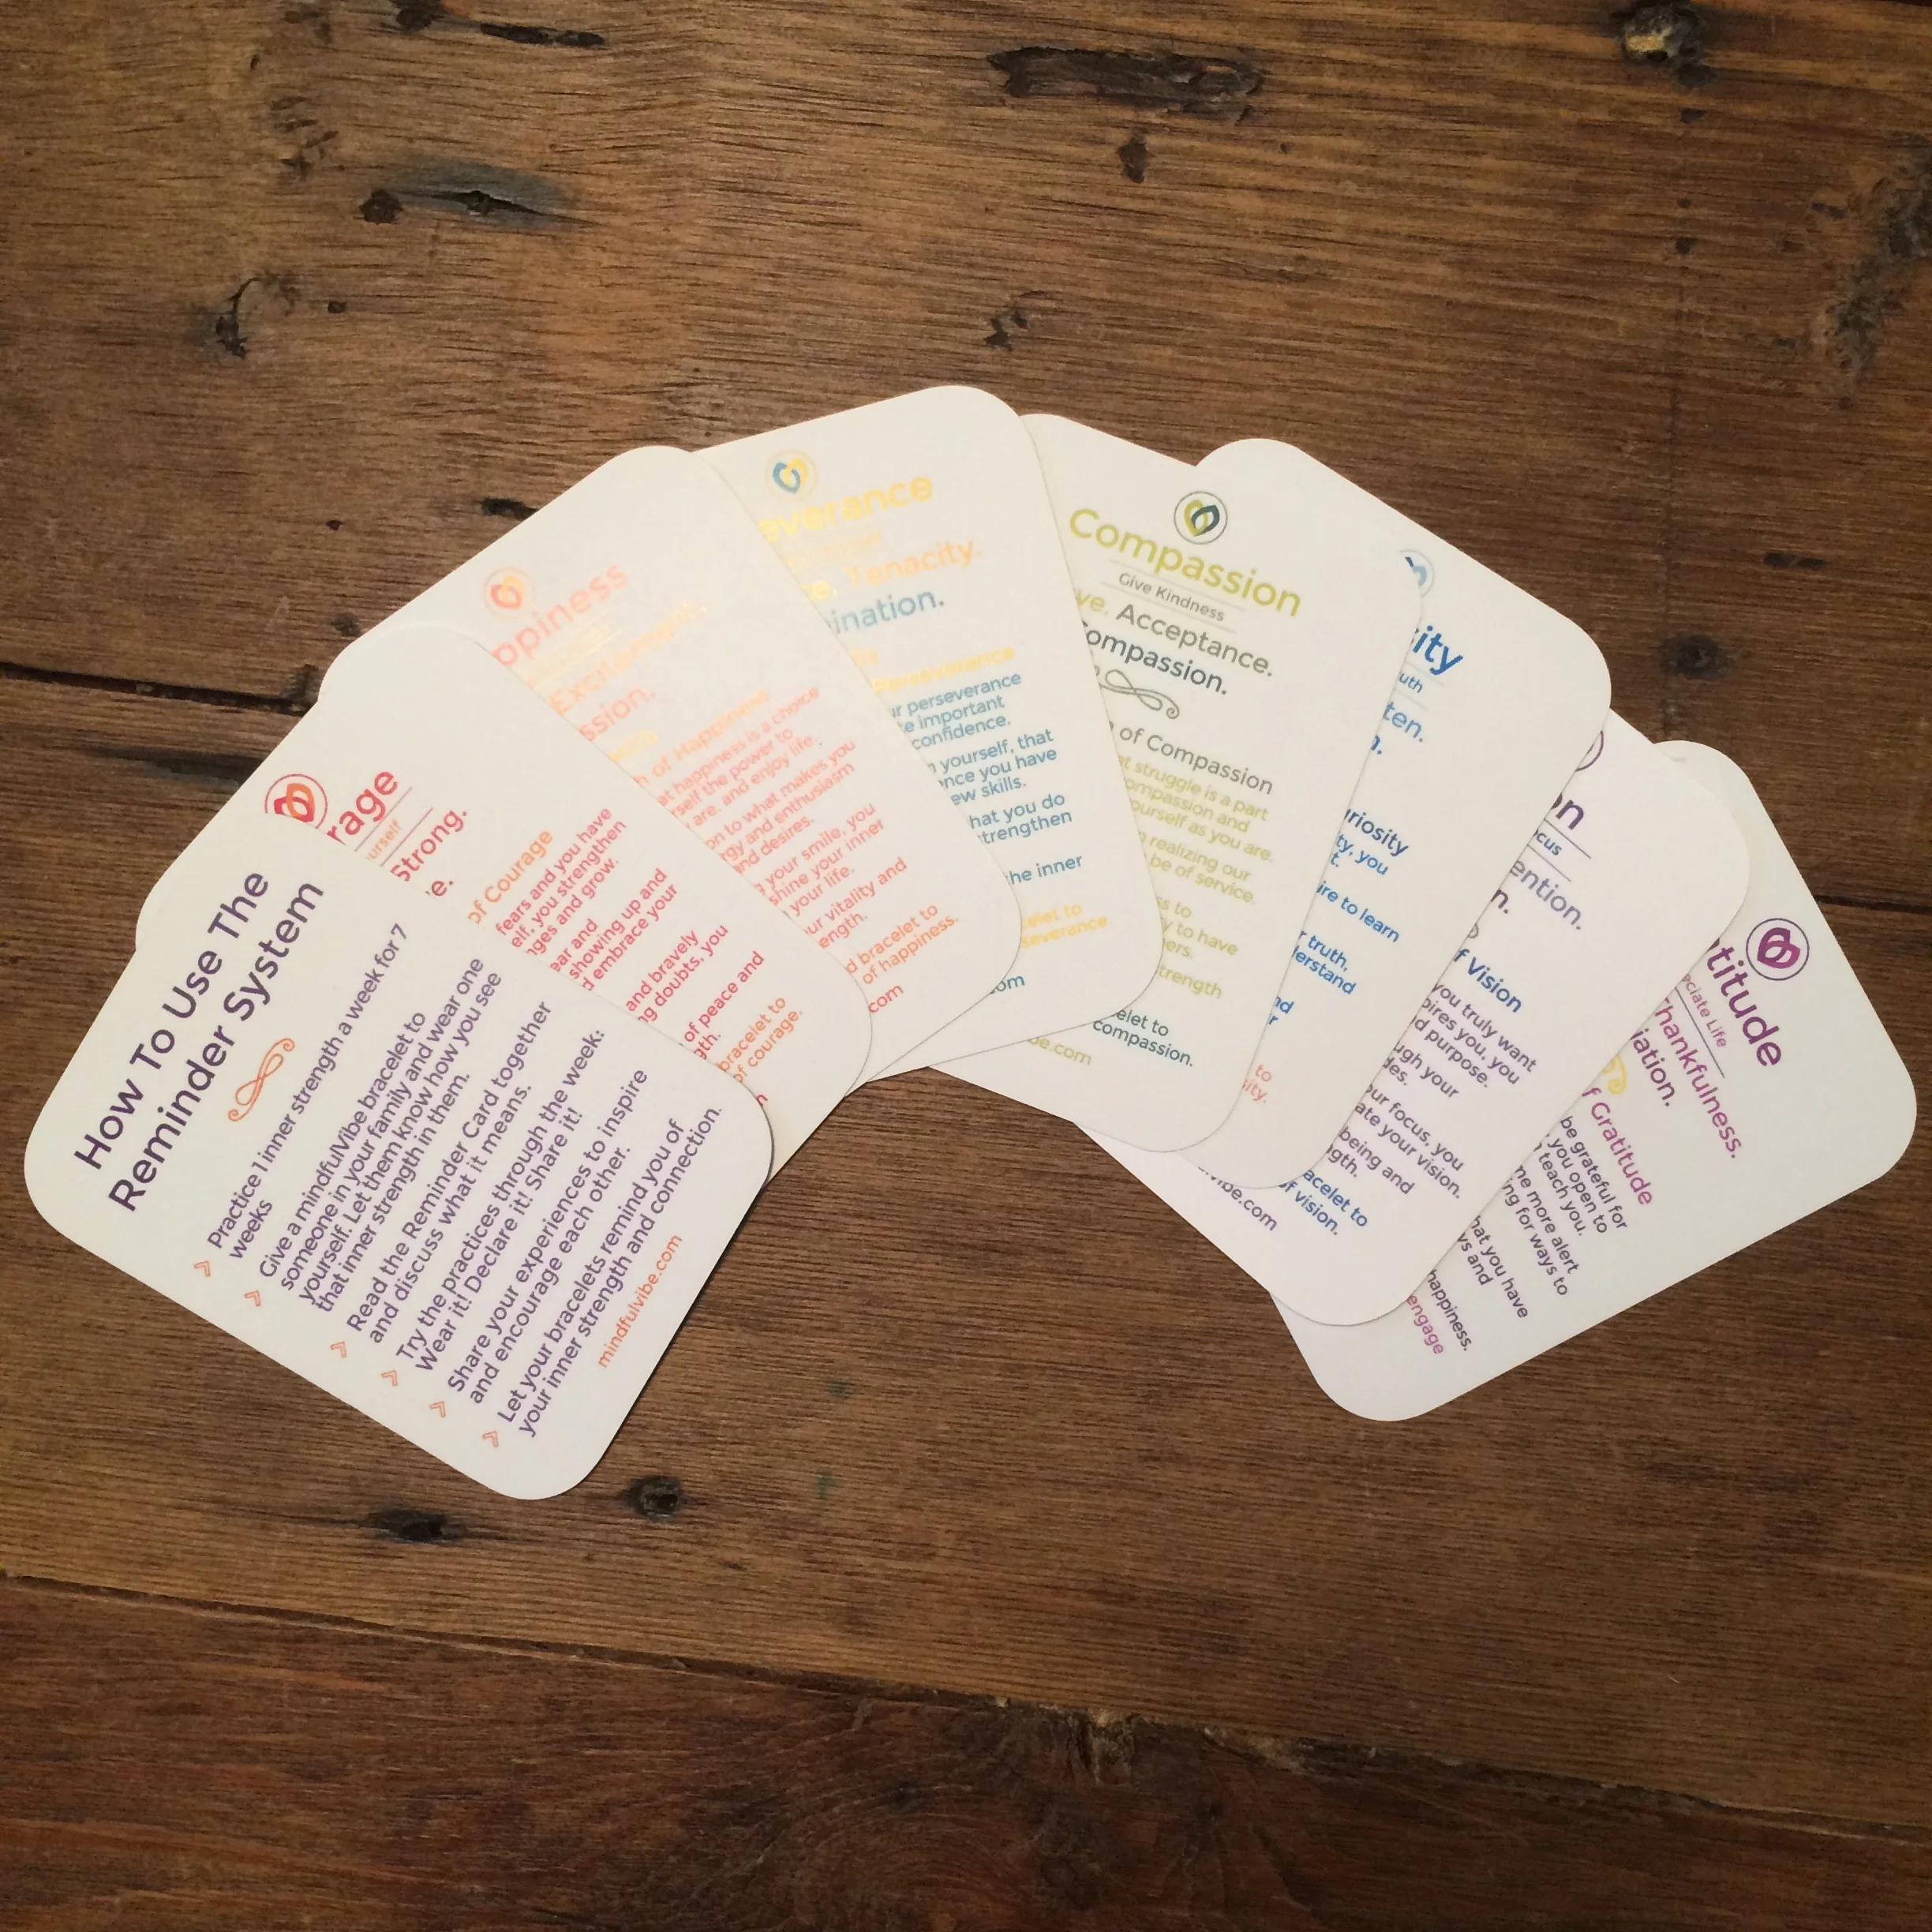 How To Use The
Reminder System
Practice 1 inner strength a week for 7
weeks
Give a mindfulVibe bracelet to
someone in your family and wear one
yourself. Let them know how you see
that inner strength in them.
Read the Reminder Card together
and discuss what it means.
Try the practices through the week:
Wear it! Declare it! Share it!
Share your experiences to inspire
and encourage each other.
Let your bracelets remind you of
your inner strength and connection.
mindfulvibe.com
rage
urself
Strong.
e.
of Courage
fears and you have
elf, you strengthen
nges and grow.
ear and
showing up and
d embrace your
and bravely
ng doubts, you
of peace and
gth.
bracelet to
of courage.
ppiness
Excitement.
ssion.
h of Happiness
at happiness is a choice
rself the power to
are, and enjoy life.
on to what makes you
rgy and enthusiasm
nd desires.
g your smile, you
shine your inner
your life.
ur vitality and
ength.
d bracelet to
of happiness.
com
everance
e. Tenacity.
ination.
Perseverance
ur perseverance
te important
confidence.
n yourself, that
ence you have
ew skills.
hat you do
trengthen
the inner
celet to
severance.
om
Compassion
Give Kindness
ve. Acceptance.
ompassion.
of Compassion
at struggle is a part
ompassion and
ourself as you are.
n realizing our
be of service.
ss to
y to have
ers.
trength
elet to
compassion.
be.com
ity
uth
ten.
n.
riosity
ty, you
t.
ire to learn
r truth,
derstand
nd
r
to
ity.
vibe.com
on
cus
ention.
n.
f Vision
you truly want
pires you, you
d purpose.
ugh your
des.
our focus, you
ate your vision.
being and
gth.
acelet to
of vision.
titude
eciate Life
Thankfulness.
iation.
f Gratitude
be grateful for
you open to
teach you.
me more alert
ng for ways to
hat you have
ys and
happiness.
engage